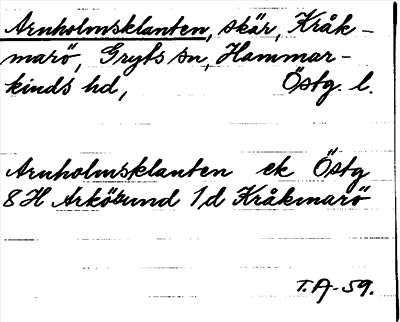 Arnholmsklanten, skär, Kråk-
marö, Gryts sn, Hammar-
kinds hd, Östg. l.
Arnholmsklanten ek Östg
8H Arkösund 1d Kråkmarö
T.A-59.